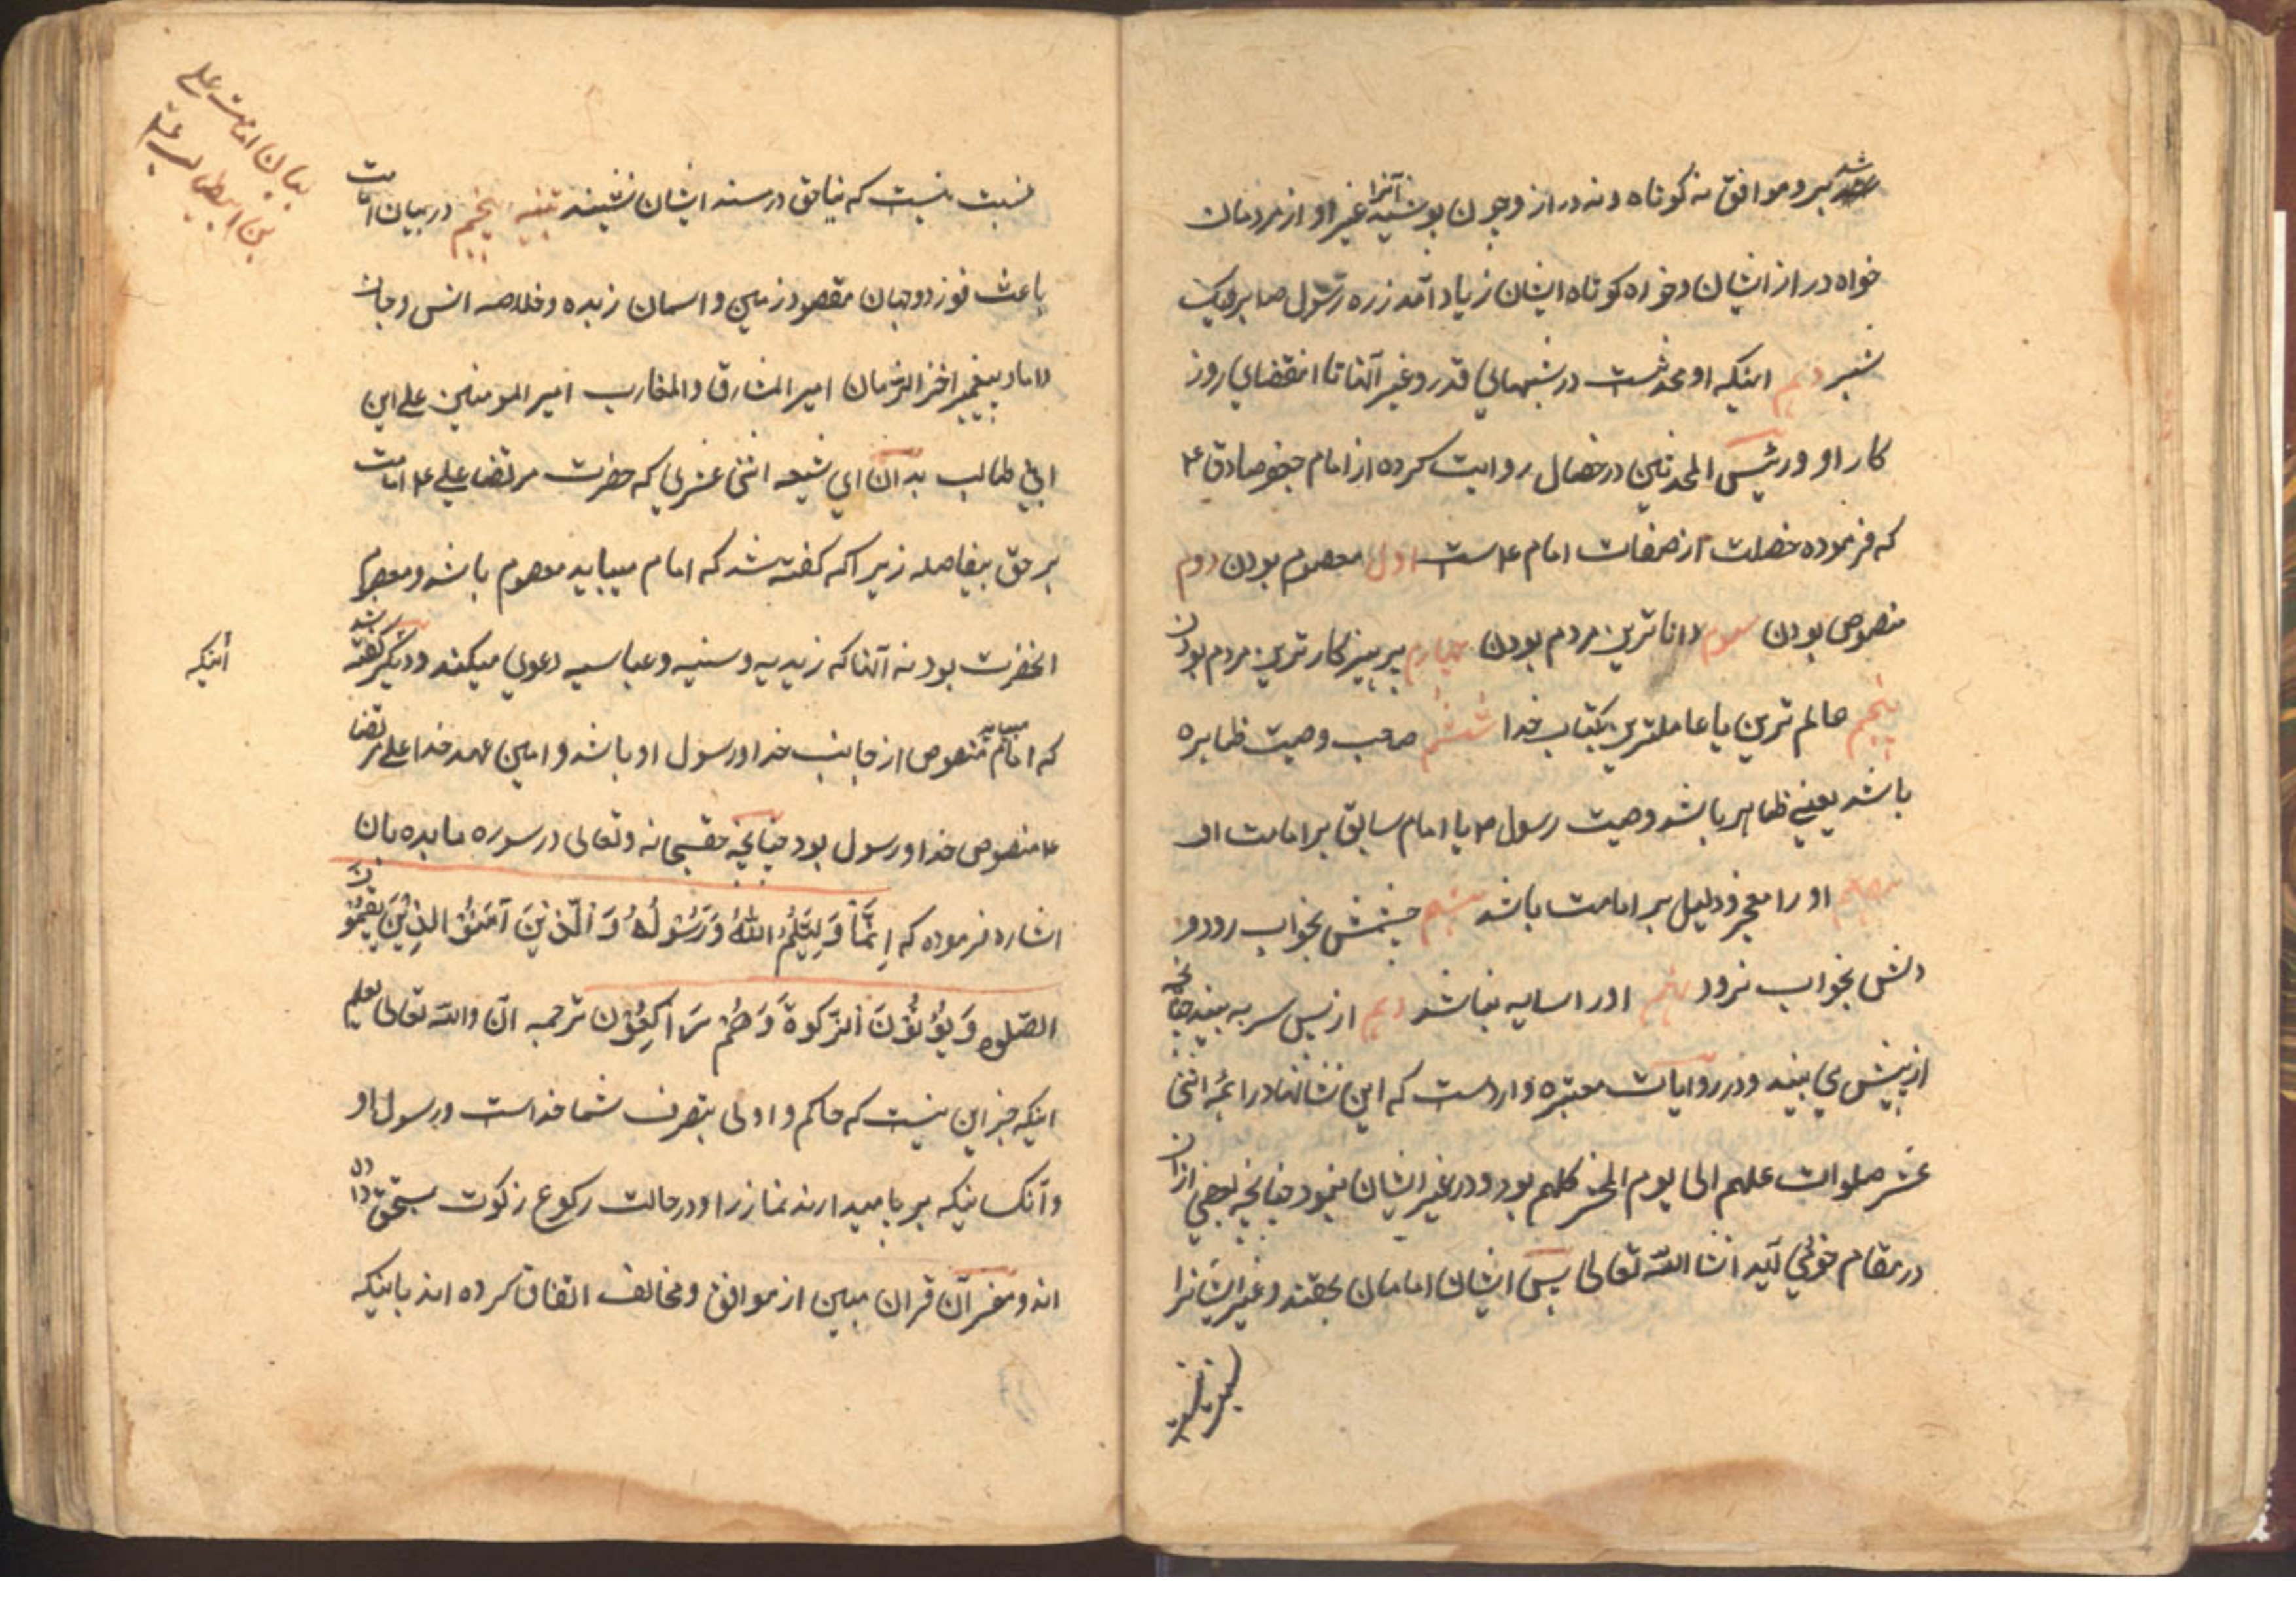 شد برو موافق نه کوتاه و نه دراز و چون پوشید آنرا غیر او از مردمان
خواه دراز ایشان و خواه کوتاه ایشان زیاد آمد زره رسول صا بر او یک
شبر دهم اینکه او محدثست در شبهای قدر و غیر آنها تا انقضای روز
کار او و رئیس المحدثین در خصال روایت کرده از امام جعفر صادق ۴
که فرموده خصلت از صفات امام ۴ است اول معصوم بودن دوم
منصوص بودن سوم داناترین مردم بودن چهارم پرهیزکارترین مردم بودن
پنجم عالم ترین یا عاملترین بکتاب خدا ششم صاحب وصیت ظاهره
باشد یعنی ظاهر باشد وصیت رسول ص یا امام سابق بر امامت او
او را معجز و دلیل بر امامت باشد هشتم چشمش بخواب رود و
دلش بخواب نرود نهم او را سایه نباشد دهم از پس سر به بیند چنانچه
از پیش می بیند و در روایات معتبره وارد است که این نشانها در ائمه اثنی
عشر صلوات علیهم الی یوم الحشر کلهم بود و در غیر ایشان نبود چنانچه بعضی ازان
در مقام خود می آید انشا الله تعالی پس ایشان امامان بحقند و غیر ایشانرا
نسبت نیست که بناحق در مسند ایشان نشینند تنبیه پنجم در بیان امامت
باعث فوز دو جهان مقصود زمین و اسمان زبده و خلاصه انس و جان
داماد پیغمبر اخر الزمان امیر المشارق والمغارب امیر المومنین علی ابن
ابی طالب بدان ای شیعه اثنی عشری که حضرت مرتضا علی ۴ امامت
بر حق بیفاصله زیرا که کفته شد که امام میباید معصوم باشد و معصوم
انحضرت بود نه آنها که زیدیه و سنیه و عباسیه دعوی میکنند و دیگر کفته شد
که امام میباید منصوص از جانب خدا و رسول او باشد و امین عهد خدا علی مرتضا
۴ منصوص خدا و رسول بود چنانچه حقسبحانه و تعالی در سوره مایده بان
اشاره فرموده که اِنَّمَا وَلِیُّکُمُ اللهُ وَرَسُولُهُ وَ الَّذِیْنَ آمَنُوْ الَّذِیْنَ یُقِیْمُوْنَ
الصَّلوه وَ یُؤْتُوْنَ الزَّکوةَ وَ هُمْ رَاکِعُوْن ترجمه آن والله تعالی یعلم
اینکه جز این نیست که حاکم و اولی بتصرف شما خداست و رسول او
و آنکسانیکه بر پا میدارند نماز را و در حالت رکوع زکوت بمستحق داده
اند و مفسرآن قران مبین از موافق و مخالف اتفاق کرده اند باینکه
بیان امامت علی
بن ابیطالب علیه
اینکه